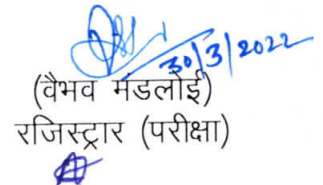 30/3/2022
(वैभव मंडलोई)
रजिस्ट्रार (परीक्षा)